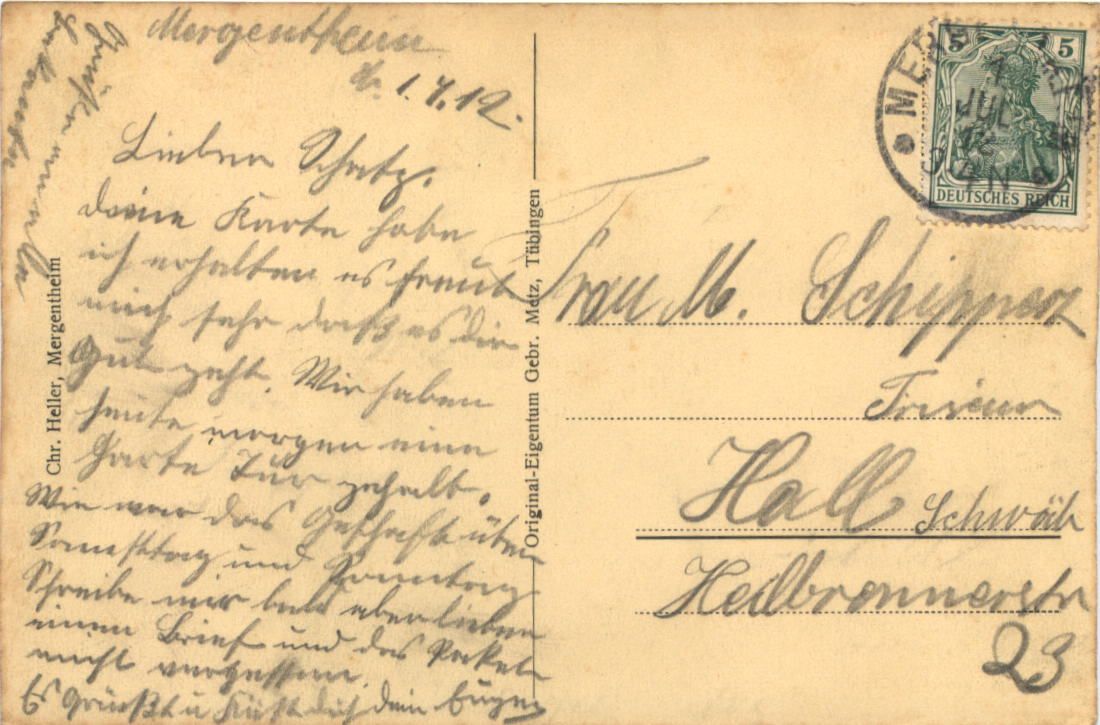 Mergentheim
1.7.12.
Lieber Schatz.
deine Karte habe
ich erhalten es freut
mich sehr daß es dir
Gut geht. Wir haben
heute morgen eine
harte Tur gehabt.
Wie war das Geschäft über
Samsttag und Sonntag
Schreibe mir bald aber lieber
einen Brief und das Paket
nicht vergessen.
Es Grüßt u Küßt dich dein Eugen
Chr. Heller, Mergentheim
Original-Eigentum Gebr. Metz, Tübingen
5 5
DEUTSCHES REICH
JUL
Frau M. Schipper
Friseur
Hall Schwäb
Heilbronnerstr
23